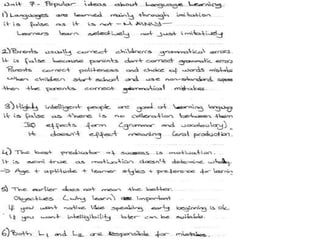 Unit 7 - Popular ideas about Language Learning
1) Languages are learned mainly through imitation
it is false as it is not always
Learners learn selectively not just imitatively
2) Parents usually correct children's grammatical errors
It is false because parents don't correct grammatic errors
Parents correct politeness and choice of words mistake
when children start school and use non-standard
then the parents correct grammatical mistakes.
3) Highly intelligent people are good at learning language
it is false as there is no correlation between them
IQ effects form (grammar and vocabulary)
It doesn't effect meaning (oral production)
4) The best predicator of success is motivation.
It is semi true as motivation doesn't determine
-> Age + aptitude + learner styles + preference for learnin
5) The earlier does not mean the better.
Objectives (why learn) important
if you want native like speaking early beginning is ok
if you want intelligibility later can be suitable.
6) Both L1 and L2 are Responsible for mistakes.